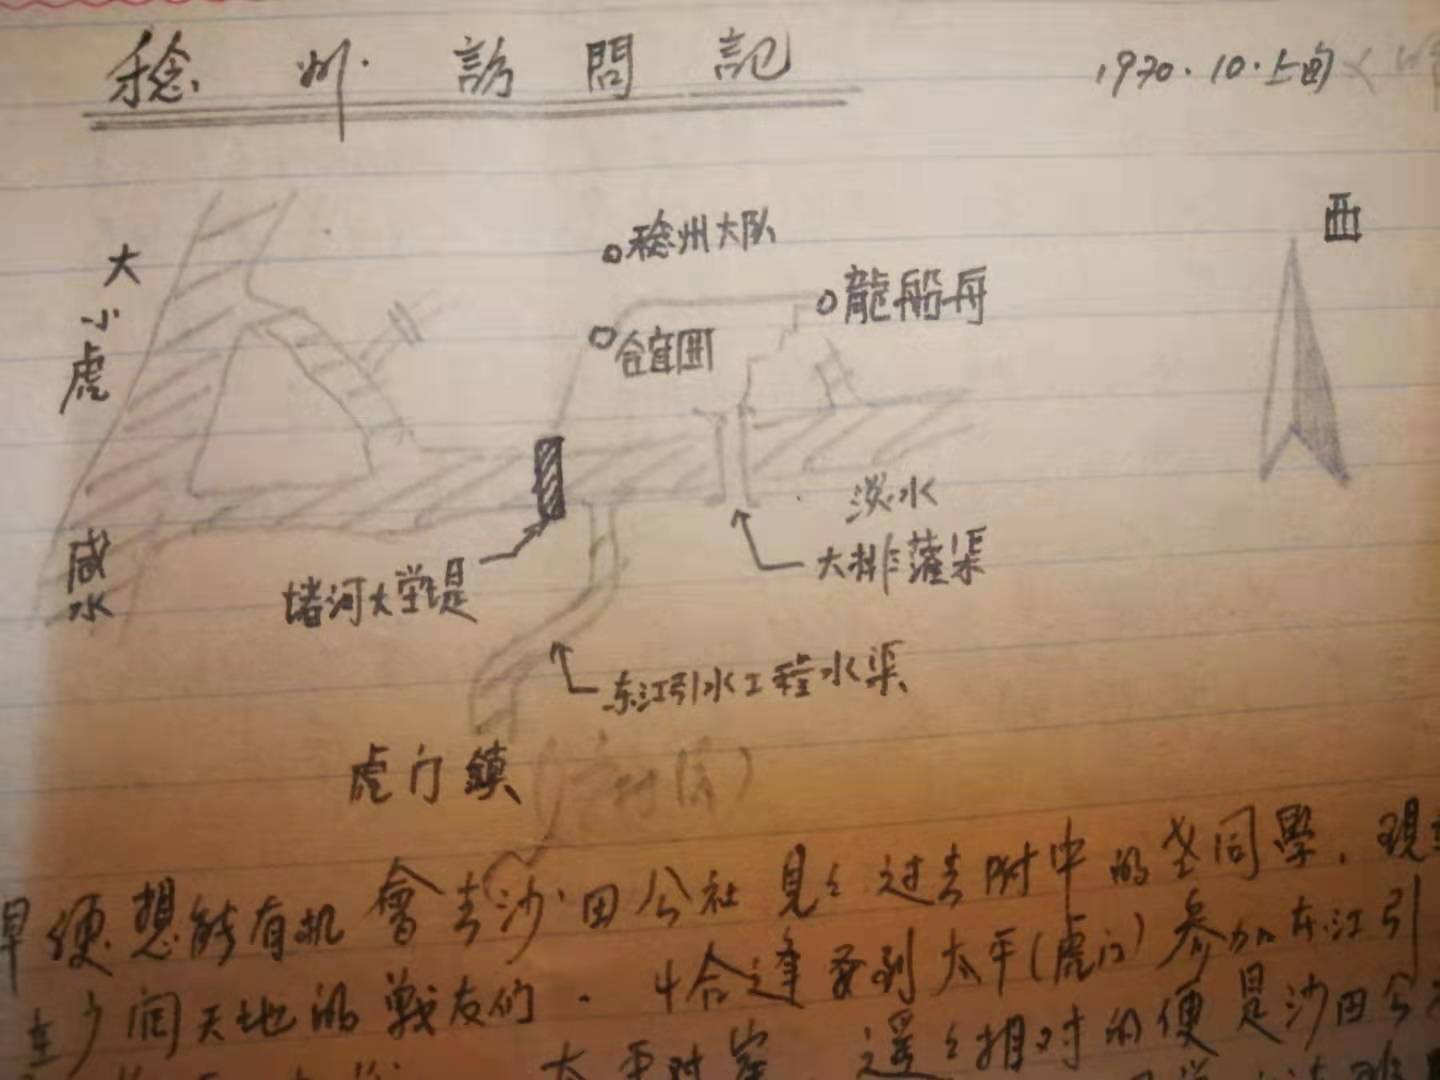 稔州訪問記
1970.10.上旬
西
大
小
虎
稔州大队
龍船舟
合宜围
咸水
淡水
大排灌渠
堵河大堂堤
东江引水工程水渠
虎门鎮
早便想能有机會去沙田公社見々过去附中的老同學.現
广阔天地的战友们.恰逢来到太平(虎门)参加东江引
遥々相对的便是沙田公